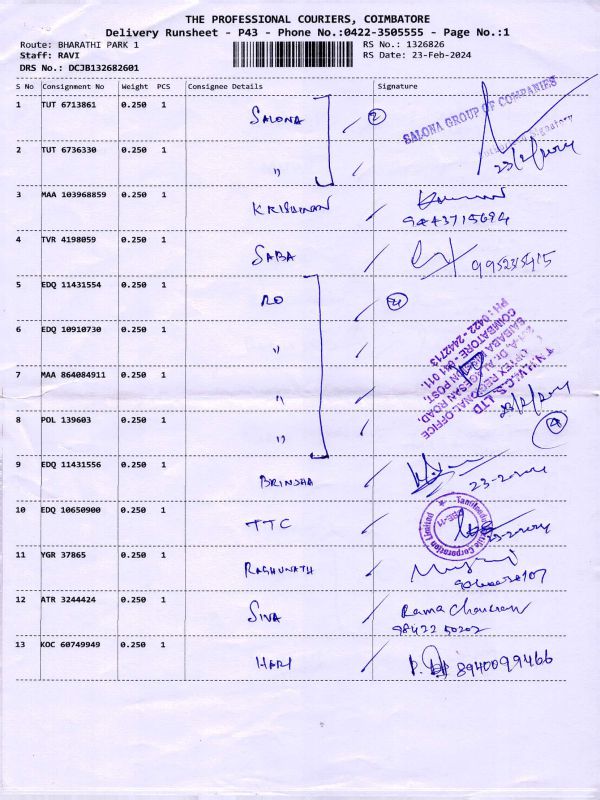 THE PROFESSIONAL COURIERS, COIMBATORE
Delivery Runsheet - P43 - Phone No.:0422-3505555 - Page No.:1
Route: BHARATHI PARK 1 RS No.: 1326826
Staff: RAVI RS Date: 23-Feb-2024
DRS No.: DCJB132682601
S No Consignment No Weight PCS Consignee Details Signature
1 TUT 6713861 0.250 1 SALONA 2 SALONA GROUP OF COMPANIES
Authorised Signatory
23/2/2024
2 TUT 6736330 0.250 1 "
3 MAA 103968859 0.250 1 KRISHNAN
9843715694
4 TVR 4198059 0.250 1 SABA
5 EDQ 11431554 0.250 1 RO 4
6 EDQ 10910730 0.250 1 "
7 MAA 864084911 0.250 1 "
8 POL 139603 0.250 1 "
T.N.H.W.C.S. LTD
OPTEX REGIONAL OFFICE
SAIBABA POST,
COIMBATORE - 641 011.
PH : 0422 - 2442713
4
9 EDQ 11431556 0.250 1 BRINDHA
23-2-2024
10 EDQ 10650900 0.250 1 TTC Corporation Limited
11 YGR 37865 0.250 1 RAGHUNATH
12 ATR 3244424 0.250 1 SIVA Rama Chandran
98422 50202
13 KOC 60749949 0.250 1 HARI 8940099466